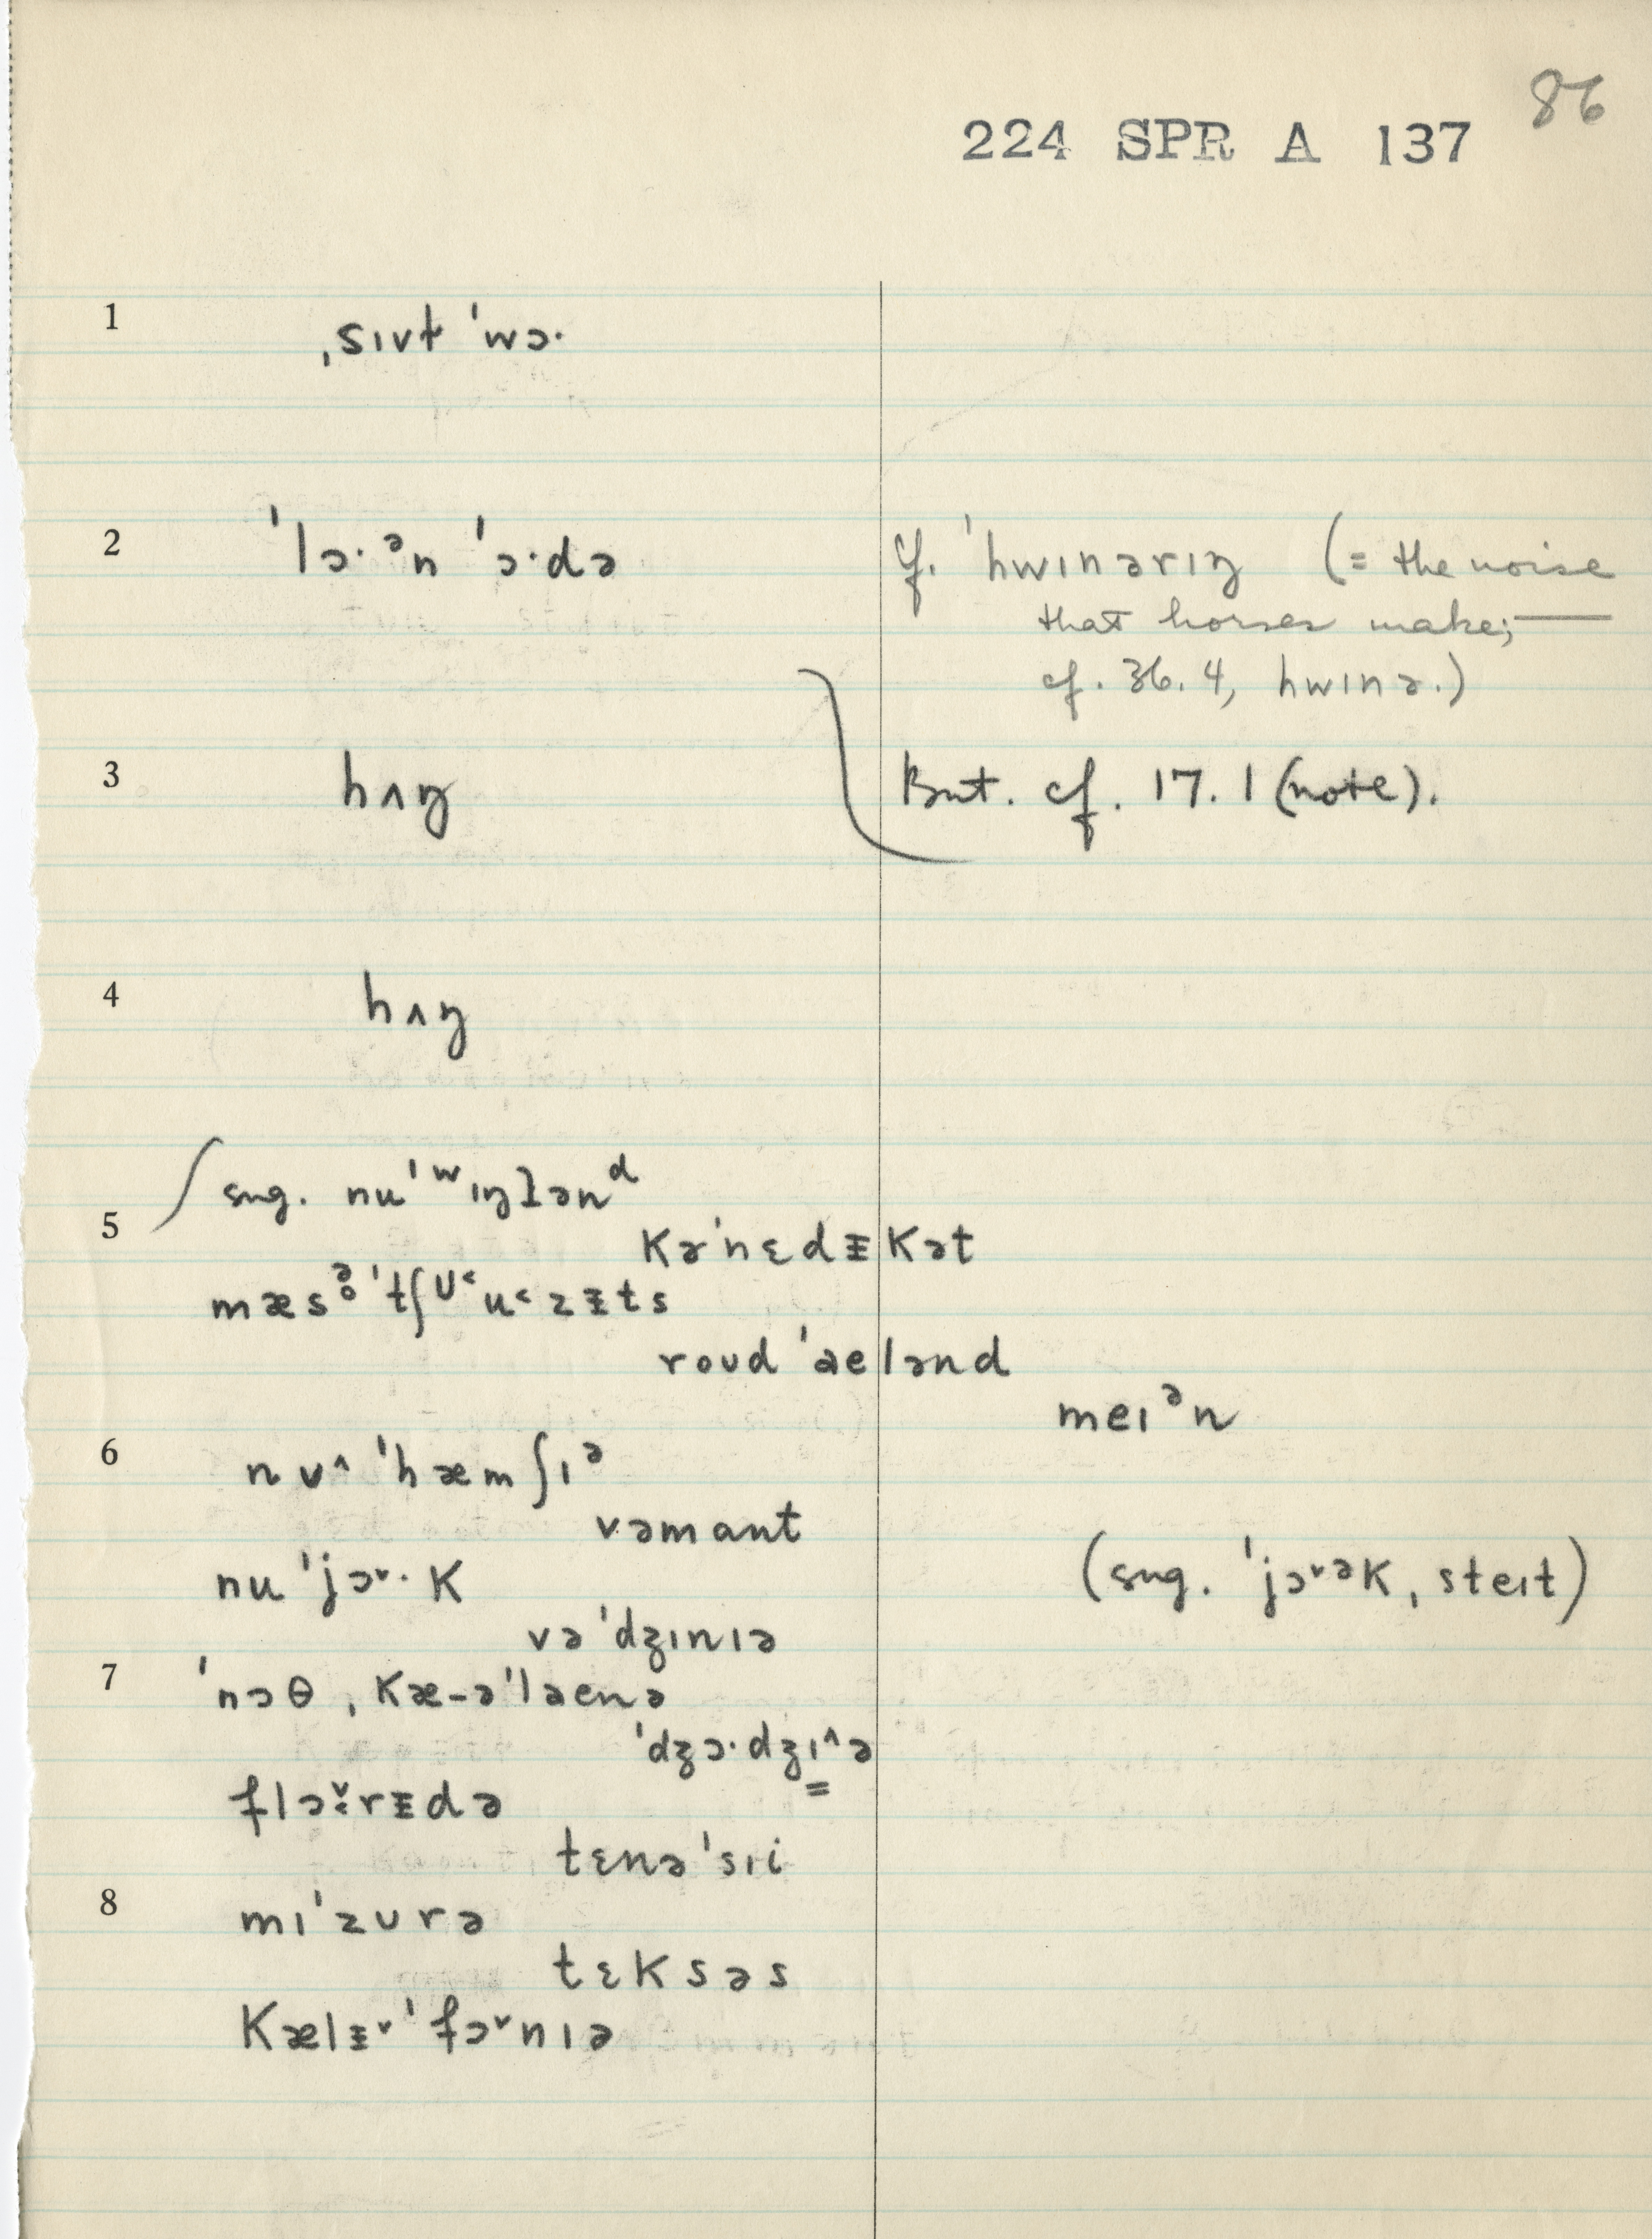 86
224 SPR A 137
1 ˌsɪvt ˈwɔ·
2 ˈlɔ·ᵊn ˈɔ·də
cf. ˈhwɪnərɪŋ (= the noise
that horses make;—
cf. 36.4, hwɪnə.)
3 hʌŋ
But. cf. 17.1 (note).
4 hʌŋ
sug. nuˈʷɪŋlənᵈ
5 kəˈnɛdɪkət
mæsəˈtʃʊ˂u˂zɪts
roud ˈaelənd
meɪᵊn
6 nʊ^ ˈhæmʃɪᵊ
vəmant
nu ˈjɔ˅·k (sug. ˈjɔ˅ək, steɪt)
vəˈdʒɪnɪə
7 ˈnɔθ ˌkæ-əˈlaenə
ˈdʒɔ·dʒɪ^ə
flɔ˅:rɪdə
tɛnəˈsɪi
8 mɪˈzʊrə
tɛksəs
kælɪ˅ˈfɔ˅nɪə